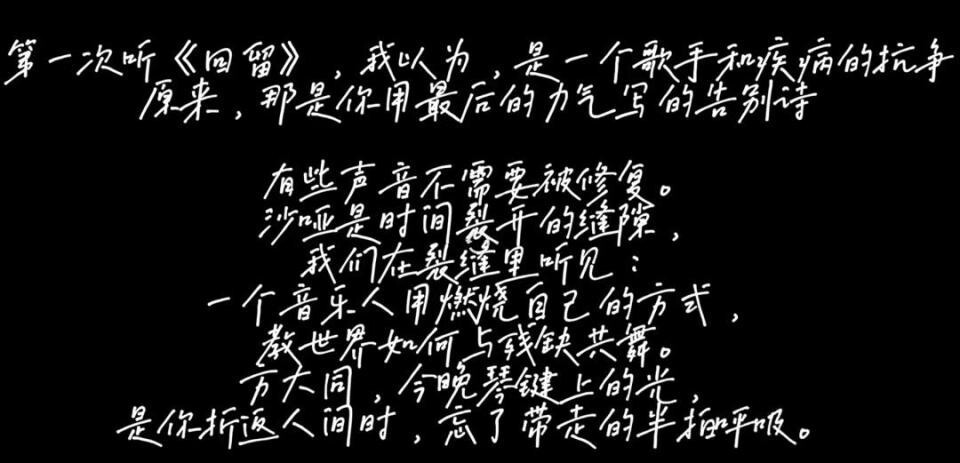 第一次听《回留》，我以为，是一个歌手和疾病的抗争
原来，那是你用最后的力气写的告别诗
有些声音不需要被修复。
沙哑是时间裂开的缝隙，
我们在裂缝里听见：
一个音乐人用燃烧自己的方式，
教世界如何与残缺共舞。
方大同，今晚琴键上的光，
是你折返人间时，忘了带走的半拍呼吸。